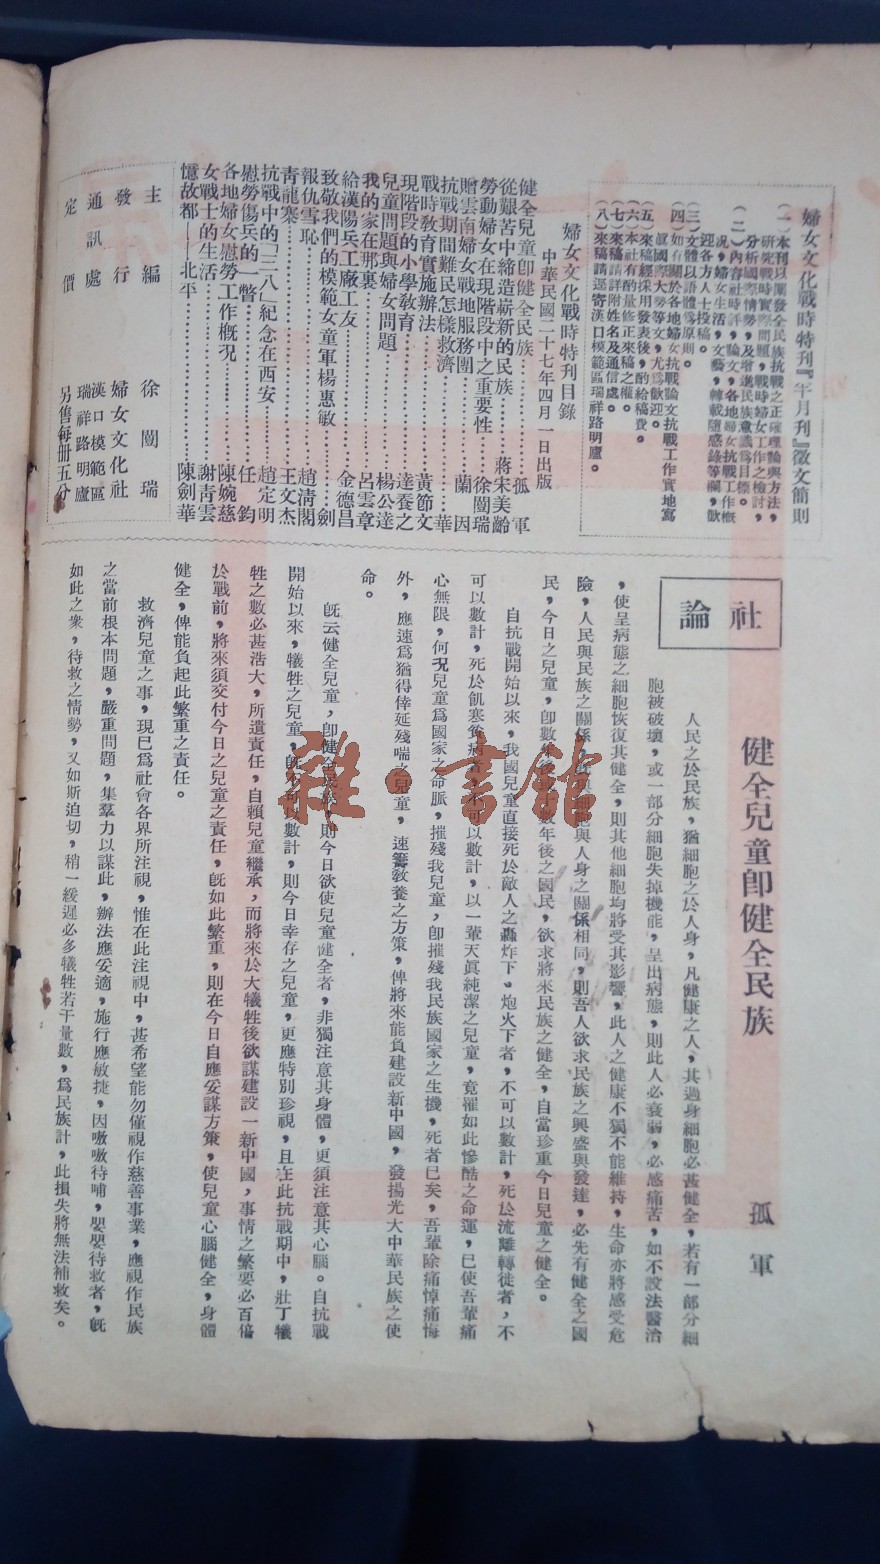 婦女文化戰時特刊『半月刊』徵文簡則
(一)本刊以闡發全民族抗戰之正確理論與方法，
研究戰時實際問題，戰時婦女工作之檢討，
分析國際情勢，及增進民族意識爲目標。
(二)內容社時評，論文，各地婦女抗戰工作概
況，婦女生活，文藝，轉載隨感錄等欄，歡
迎各方人士投稿。
(三)文體以語體爲原則。
(四)如有關於各地婦女抗戰論文抗戰工作實地寫
眞國際大勢等文，尤爲歡迎。
(五)來稿經採用發表後，酌給稿費。
(六)本社有酌量修正來稿之權。
(七)來稿請詳附姓名及通信處。
(八)來稿請逕寄漢口模範區瑞祥路明廬。
婦女文化戰時特刊目錄
中華民國二十七年四月一日出版
健全兒童卽健全民族…………孤軍
從艱苦中締造嶄新的民族……蔣宋美齡
勞動婦女在現階段中之重要性……徐闓瑞
贈雲南婦女戰地服務團………蘭因
抗戰期間難民怎樣救濟………華
戰時敎育實施辦法……………黃節文
現階段的小學敎育……………達養之
兒童問題與婦女問題…………楊公達
我的家在那裏…………………呂雲章
給漢陽兵工廠工友……………金德昌
致敬我們的模範女童軍楊惠敏……劍
報仇雪恥………………………趙清閣
靑龍寨…………………………王文杰
抗戰中的「三八」紀念在西安……趙定明
慰勞傷兵的一瞥………………任鈞
各地婦女慰勞工作概況………陳婉慈
女戰士的生活…………………謝靑雲
憶故都——北平………………陳劍華
主編 徐闓瑞
發行 婦女文化社
通訊處 漢口模範區
瑞祥路明廬
定價 另售每册五分
社論
健全兒童卽健全民族
孤軍
人民之於民族，猶細胞之於人身，凡健康之人，其過身細胞必甚健全，若有一部分細
胞被破壞，或一部分細胞失掉機能，呈出病態，則此人必衰弱，必感痛苦，如不設法醫治
，使呈病態之細胞恢復其健全，則其他細胞均將受其影響，此人之健康不獨不能維持，生命亦將感受危
險，人民與民族之關係，與細胞與人身之關係相同，則吾人欲求民族之興盛與發達，必先有健全之國
民，今日之兒童，卽數年後數年後之國民，欲求將來民族之健全，自當珍重今日兒童之健全。
自抗戰開始以來，我國兒童直接死於敵人之轟炸下。炮火下者，不可以數計，死於流離轉徙者，不
可以數計，死於飢寒疾病者，不可以數計，以一輩天眞純潔之兒童，竟罹如此慘酷之命運，已使吾輩痛
心無限，何況兒童爲國家之命脈，摧殘我兒童，卽摧殘我民族國家之生機，死者已矣，吾輩除痛悼痛悔
外，應速爲猶得倖延殘喘之兒童，速籌敎養之方策，俾將來能負建設新中國，發揚光大中華民族之使
命。
旣云健全兒童，卽健全民族，則今日欲使兒童健全者，非獨注意其身體，更須注意其心腦。自抗戰
開始以來，犧牲之兒童，旣不可以數計，則今日幸存之兒童，更應特別珍視，且在此抗戰期中，壯丁犧
牲之數必甚浩大，所遺責任，自賴兒童繼承，而將來於大犧牲後欲謀建設一新中國，事情之繁要必百倍
於戰前，將來須交付今日之兒童之責任，旣如此繁重，則在今日自應妥謀方策，使兒童心腦健全，身體
健全，俾能負起此繁重之責任。
救濟兒童之事，現已爲社會各界所注視，惟在此注視中，甚希望能勿僅視作慈善事業，應視作民族
之當前根本問題，嚴重問題，集羣力以謀此，辦法應妥適，施行應敏捷，因嗷嗷待哺，嬰嬰待救者，旣
如此之衆，待救之情勢，又如斯迫切，稍一緩遲必多犧牲若干量數，爲民族計，此損失將無法補救矣。
雜·書館